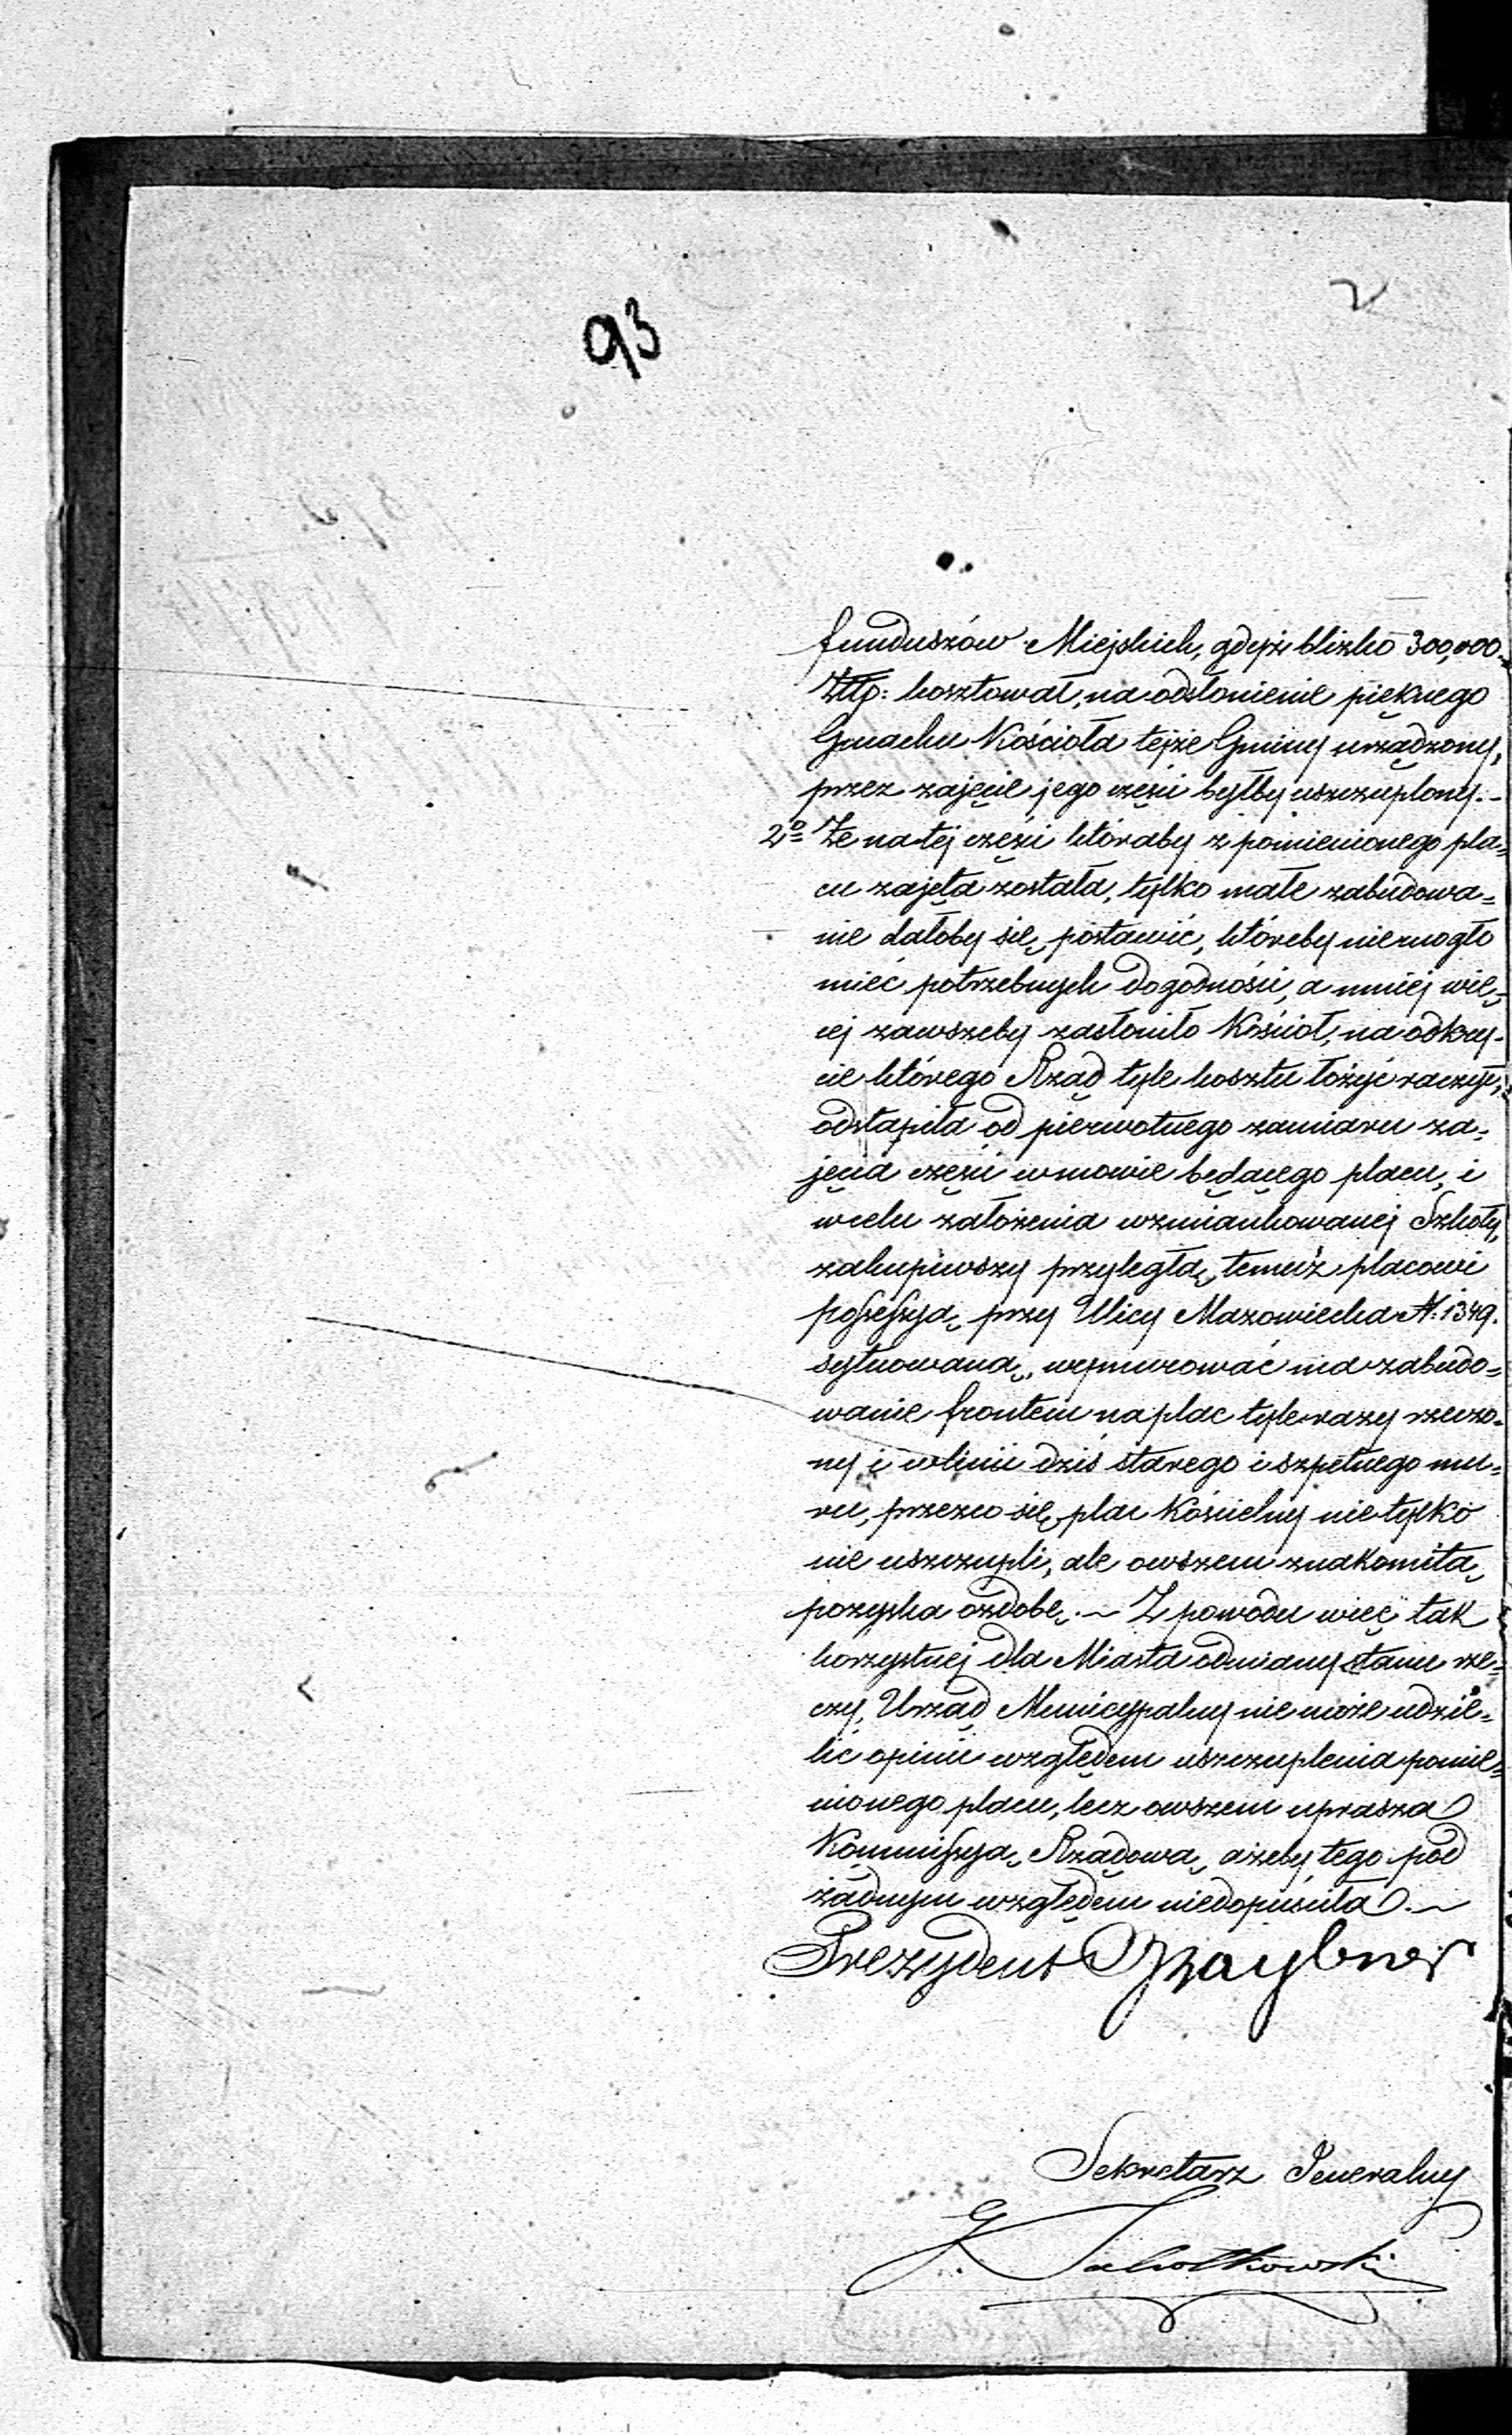 93
2
funduszów Miejskich, gdyż blizko 300,000
Złłp: kosztował, na odsłonienie pięknego
Gmachu Kościoła tejże Gminy urządzony,
przez zajęcie jego części byłby uszczuplony.-
2º Że na tej części któraby z pomienionego pla=
cu zajęta została, tylko małe zabudowa=
nie dałoby się postawić, któreby niemogło
mieć potrzebnych dogodności, a mniej wię=
cej zawszeby zasłoniło Kościoł, na odkry-
cie którego Rząd tyle kosztu łożyć raczył,
odstąpiła od pierwotnego zamiaru za=
jęcia części w mowie będącego placu, i
w celu założenia wzmiankowanej Szkoły,
zakupiwszy przyległą temuż placowi
possessyą przy Ulicy Mazowiecka N. 1349.
sytuowaną, wymurować ma zabudo=
wanie frontem na plac tyle razy rzeczo=
ny i w linii dziś starego i szpetnego mu=
ru, przezco się plac Kościelny nie tylko
nie uszczupli, ale owszem znakomitą
pozyska ozdobę.- Z powodu więc tak
korzystnej dla Miasta odmiany stanu rze=
czy, Urząd Municypalny nie może udzie=
lić opinii względem uszczuplenia pomie=
nionego placu, lecz owszem uprasza
Kommissyą Rządową, ażeby tego pod
żadnym względem niedopuściła.-
Prezydent Graybner
Sekretarz Jeneralny